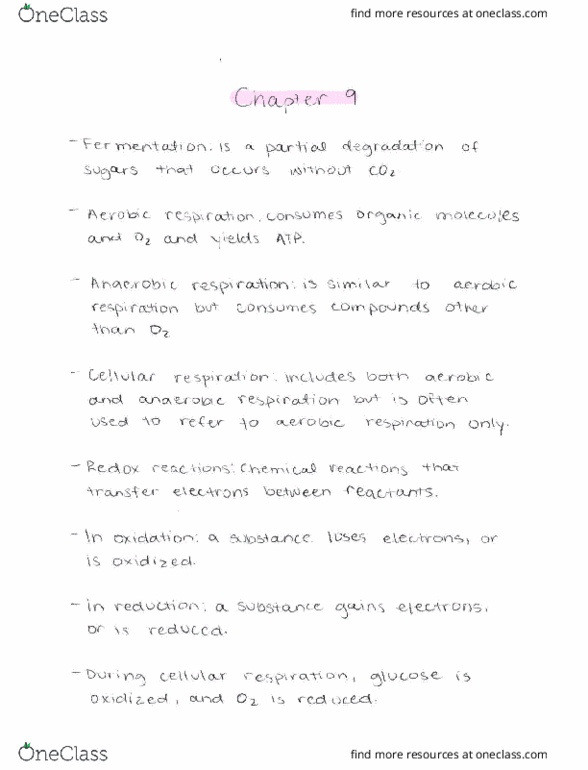 OneClass
find more resources at oneclass.com
Chapter 9
- Fermentation: is a partial degradation of
sugars that occurs without CO2
- Aerobic respiration: consumes organic molecules
and O2 and yields ATP.
- Anaerobic respiration: is similar to aerobic
respiration but consumes compounds other
than O2
- Cellular respiration: includes both aerobic
and anaerobic respiration but is often
used to refer to aerobic respiration only.
- Redox reactions: Chemical reactions that
transfer electrons between reactants.
- In oxidation: a substance loses electrons, or
is oxidized.
- in reduction: a substance gains electrons,
or is reduced.
- During cellular respiration, glucose is
oxidized, and O2 is reduced.
OneClass
find more resources at oneclass.com